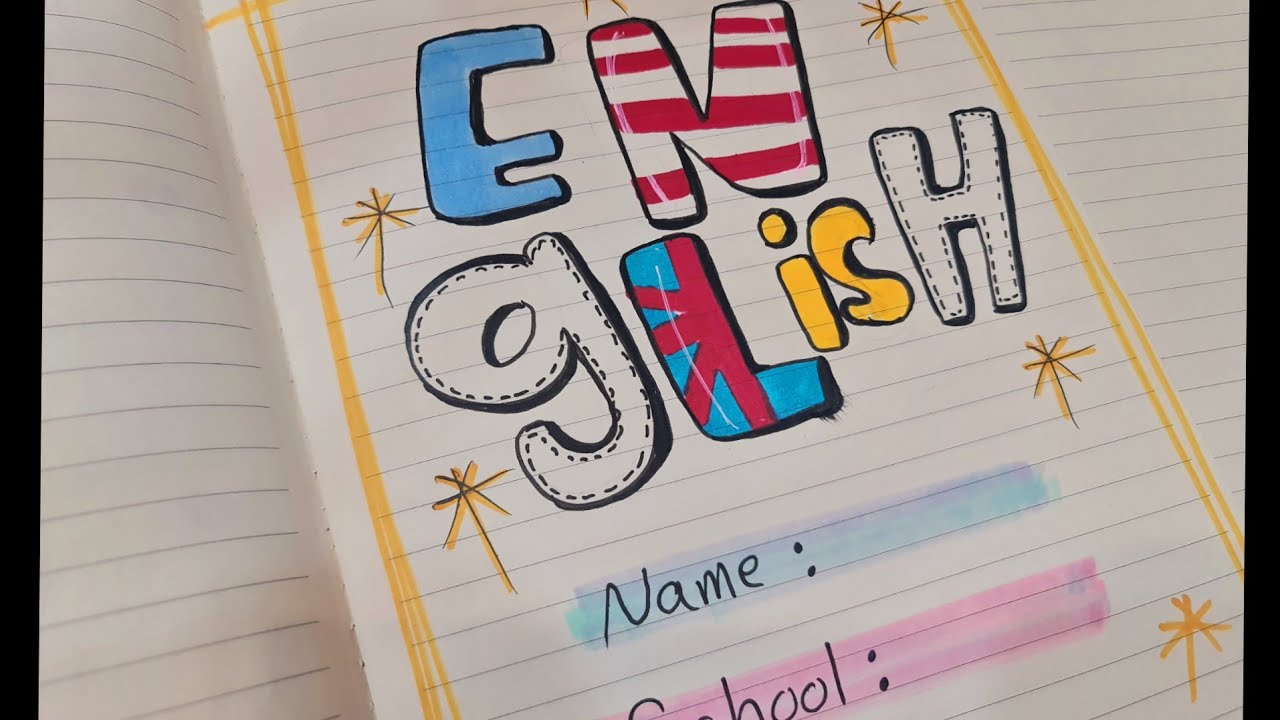 EN
gLisH
Name :
School :